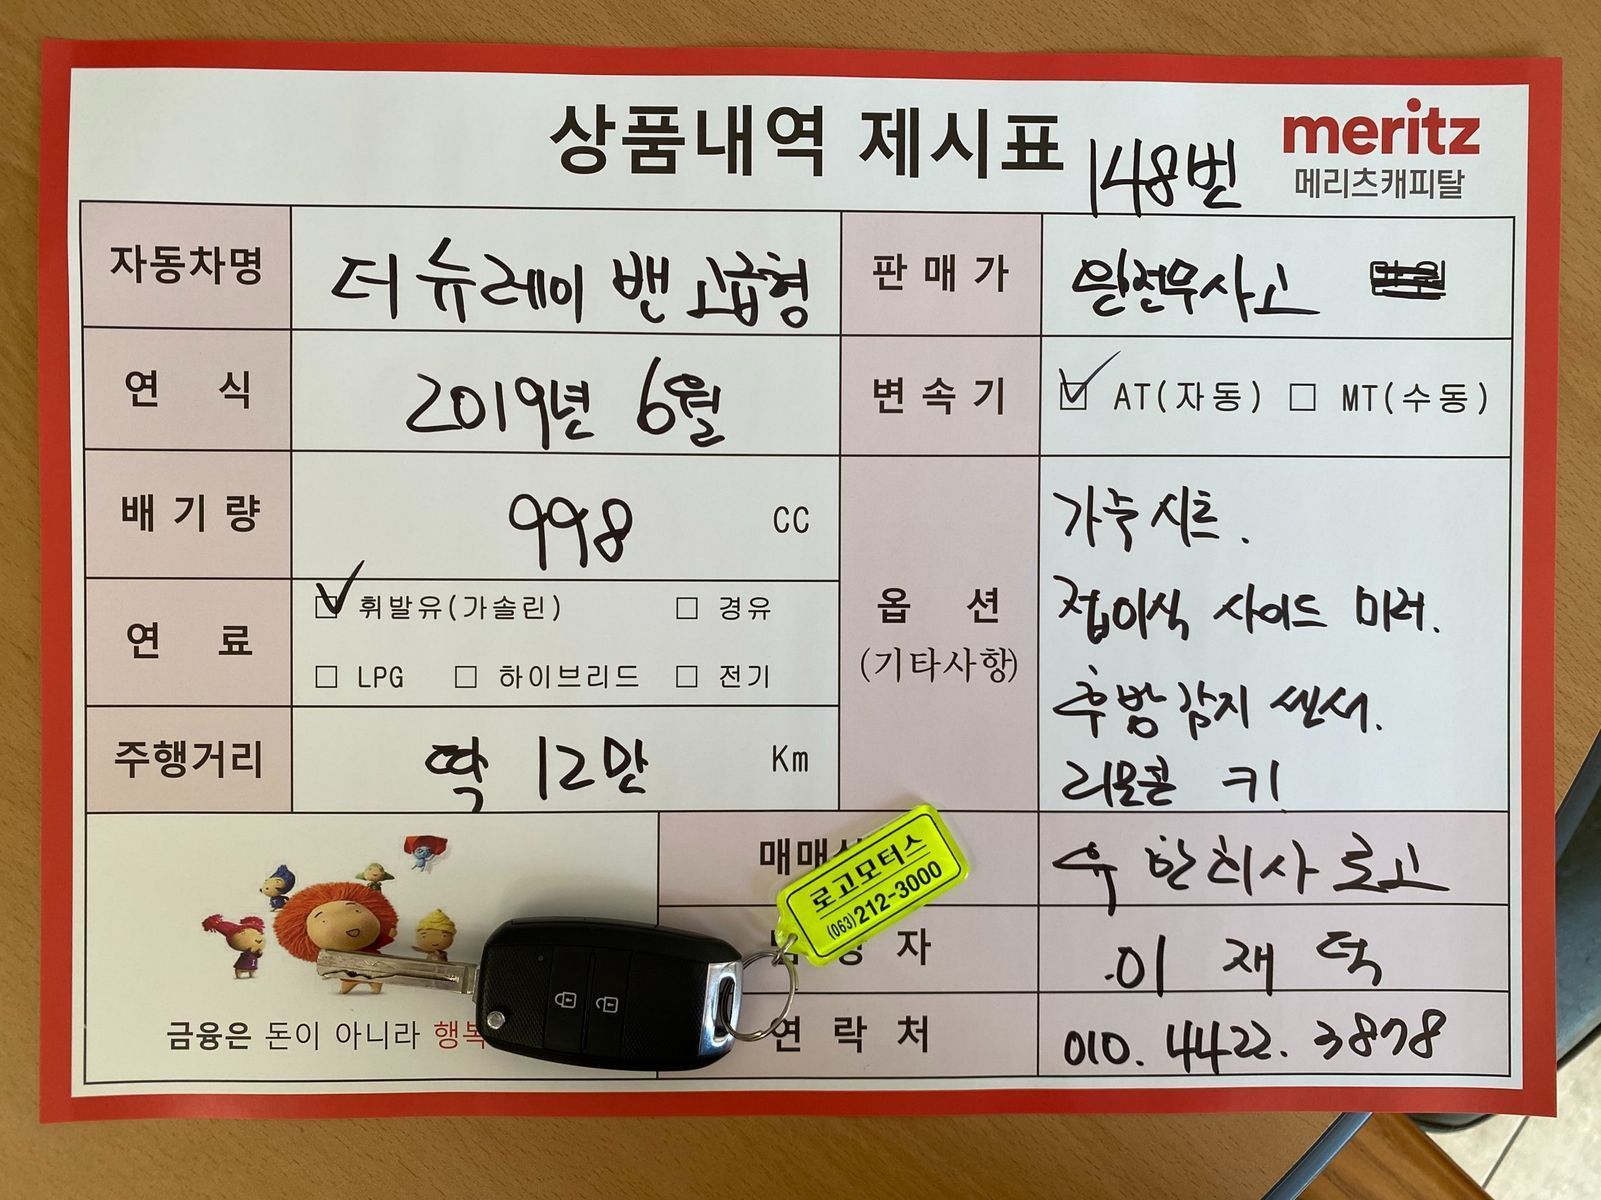 상품내역 제시표
148번
meritz
메리츠캐피탈
자동차명
더 뉴레이 밴 고급형
판매가
완전무사고
연 식
2019년 6월
변속기
AT(자동) MT(수동)
배기량
998 CC
연 료
휘발유(가솔린) 경유
LPG 하이브리드 전기
옵 션
(기타사항)
가죽시트.
접이식 사이드 미러.
후방감지 센서.
리모콘 키
주행거리
딱 12만 Km
매매
유한회사 로고
로고모터스
(063)212-3000
자
이재덕
연락처
010.4422.3878
금융은 돈이 아니라 행복